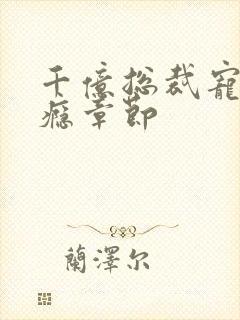 千億总裁寵
癮章節
蘭澤尔